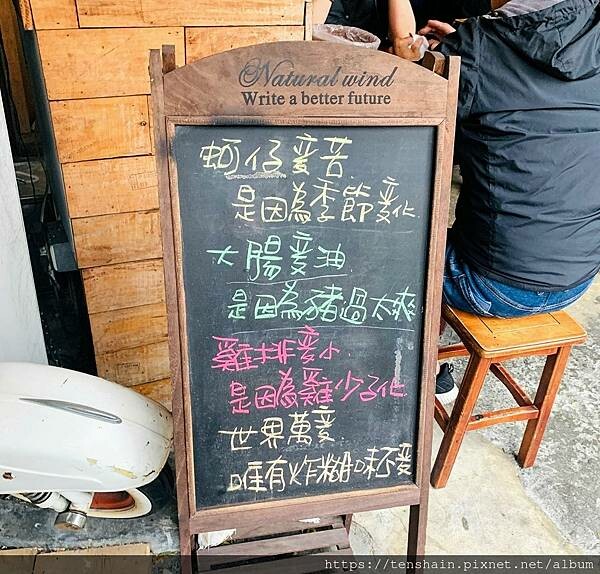 Natural wind
Write a better future
蚵仔变苦
是因為季節变化
大腸变油
是因為豬過太爽
雞排变小
是因為雞少子化
世界萬变
唯有炸粿味不变
https://tenshain.pixnet.net/album